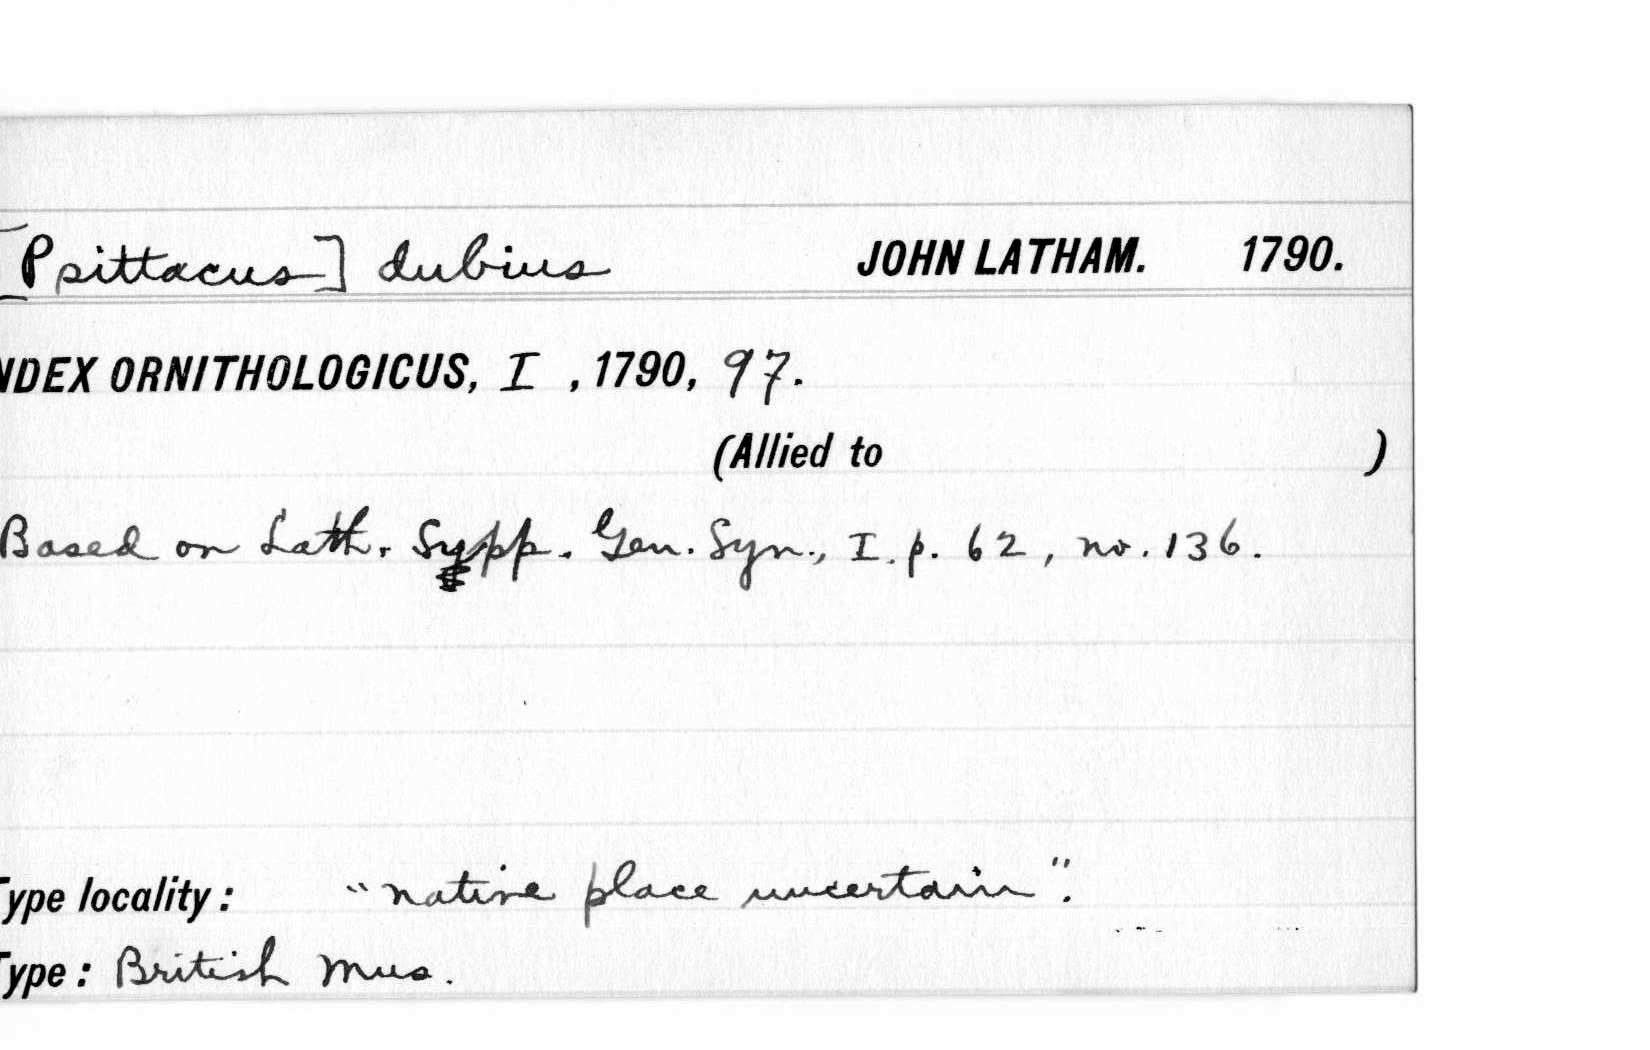 [Psittacus] dubius JOHN LATHAM. 1790.
NDEX ORNITHOLOGICUS, I , 1790, 97.
(Allied to )
Based on Lath. Supp. Gen. Syn., I. p. 62, no. 136.
Type locality: "native place uncertain".
Type: British Mus.